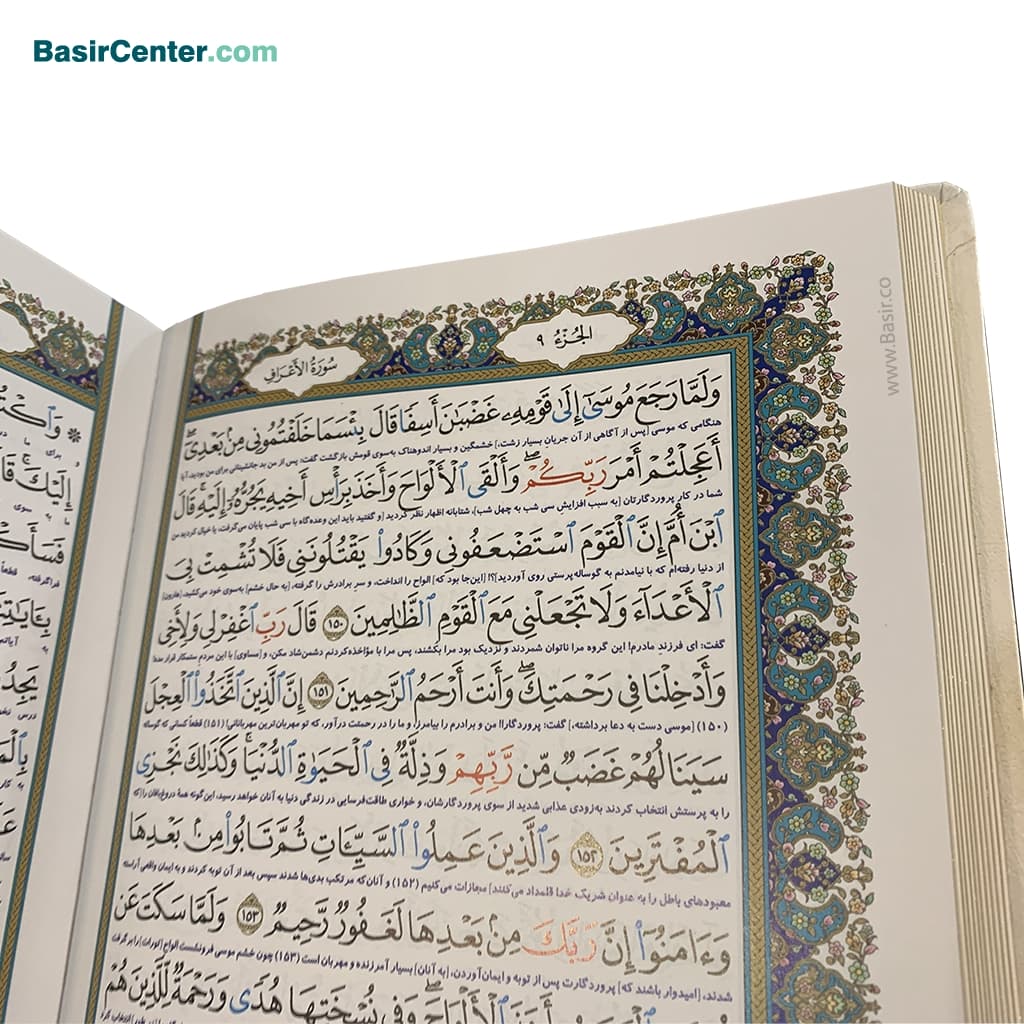 BasirCenter.com
www.Basir.co
الجُزْءُ ٩
سُورَةُ الأَعْرَافِ
وَلَمَّا رَجَعَ مُوسَىٰٓ إِلَىٰ قَوْمِهِۦ غَضْبَٰنَ أَسِفًا قَالَ بِئْسَمَا خَلَفْتُمُونِي مِنۢ بَعْدِيٓۖ
هنگامی که موسی [پس از آگاهی از آن جریان بسیار زشت،] خشمگین و بسیار اندوهناک به‌سوی قومش بازگشت گفت: پس از من بد جانشینانی برای من بودید، آیا
أَعَجِلْتُمْ أَمْرَ رَبِّكُمْۖ وَأَلْقَى ٱلْأَلْوَاحَ وَأَخَذَ بِرَأْسِ أَخِيهِ يَجُرُّهُۥٓ إِلَيْهِۚ قَالَ
شما در کار پروردگارتان [به سبب افزایش سی شب به چهل شب]، شتابانه اظهار نظر کردید [و گفتید باید این وعده‌گاه با سی شب پایان می‌گرفت، با خیال کردید من
ٱبْنَ أُمَّ إِنَّ ٱلْقَوْمَ ٱسْتَضْعَفُونِي وَكَادُوا۟ يَقْتُلُونَنِي فَلَا تُشْمِتْ بِيَ
از دنیا رفته‌ام که با نیامدنم به گوساله‌پرستی روی آوردید]؟! [این‌جا بود که] الواح را انداخت، و سرِ برادرش را گرفته، [به حال خشم] به‌سوی خود می‌کشید، [هارون]
ٱلْأَعْدَآءَ وَلَا تَجْعَلْنِي مَعَ ٱلْقَوْمِ ٱلظَّٰلِمِينَ ١٥٠ قَالَ رَبِّ ٱغْفِرْ لِي وَلِأَخِي
گفت: ای فرزند مادرم! این گروه مرا ناتوان شمردند و نزدیک بود مرا بکشند، پس مرا با مؤاخذه کردنم دشمن‌شاد مکن، و [مساوی] با این مردم ستمکار قرار مده!
وَأَدْخِلْنَا فِي رَحْمَتِكَۖ وَأَنتَ أَرْحَمُ ٱلرَّٰحِمِينَ ١٥١ إِنَّ ٱلَّذِينَ ٱتَّخَذُوا۟ ٱلْعِجْلَ
(۱۵۰) [موسی دست به دعا برداشته،] گفت: پروردگارا! من و برادرم را بیامرز، و ما را در رحمتت درآور، که تو مهربان‌ترین مهربانانی! (۱۵۱) قطعاً کسانی که گوساله
سَيَنَالُهُمْ غَضَبٌ مِّن رَّبِّهِمْ وَذِلَّةٌ فِي ٱلْحَيَوٰةِ ٱلدُّنْيَاۚ وَكَذَٰلِكَ نَجْزِي
را به پرستش انتخاب کردند به‌زودی عذابی شدید از سوی پروردگارشان، و خواری طاقت‌فرسایی در زندگی دنیا به آنان خواهد رسید، این‌گونه همهٔ دروغ‌بافان را [که
ٱلْمُفْتَرِينَ ١٥٢ وَٱلَّذِينَ عَمِلُوا۟ ٱلسَّيِّـَٔاتِ ثُمَّ تَابُوا۟ مِنۢ بَعْدِهَا
معبودهای باطل را به عنوان شریک خدا قلمداد می‌کنند] مجازات می‌کنیم (۱۵۲) و آنان‌که مرتکب بدی‌ها شدند سپس بعد از آن توبه کردند و به ایمان واقعی آراسته
وَءَامَنُوٓا۟ إِنَّ رَبَّكَ مِنۢ بَعْدِهَا لَغَفُورٌ رَّحِيمٌ ١٥٣ وَلَمَّا سَكَتَ عَن
شدند، [امیدوار باشند که] پروردگارت پس از توبه و ایمان‌آوردن، [به آنان] بسیار آمرزنده و مهربان است (۱۵۳) چون خشم موسی فرونشست الواح [تورات] را برگرفت
ٱلْأَلْوَاحَۖ وَفِي نُسْخَتِهَا هُدًى وَرَحْمَةٌ لِّلَّذِينَ هُمْ
إِلَيْكَ